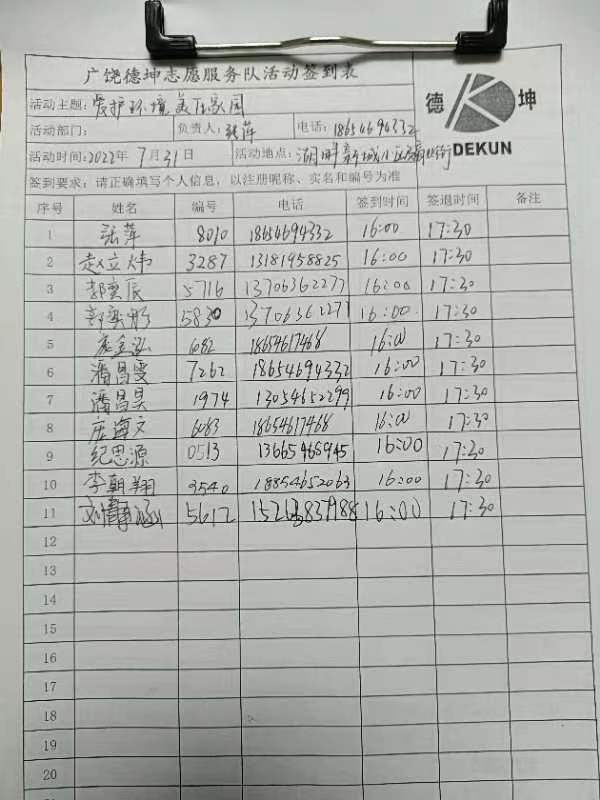 广饶德坤志愿服务队活动签到表
德 坤
DEKUN
活动主题: 爱护环境 美在家园
活动部门: 负责人: 张萍 电话: 18654694332
活动时间: 2022年 7月31日 活动地点: 湖畔新城小区
签到要求: 请正确填写个人信息，以注册昵称、实名和编号为准
序号 姓名 编号 电话 签到时间 签退时间 备注
1 张萍 8010 18654694332 16:00 17:30
2 赵立炜 3287 13181958825 16:00 17:30
3 郭奕辰 5716 13706362277 16:00 17:30
4 郭奕彤 5830 13706362277 16:00 17:30
5 6082 18654617468 16:00 17:30
6 潘昌雯 7262 18654694332 16:00 17:30
7 潘昌昊 1974 13054652299 16:00 17:30
8 庄海文 6083 18654617468 16:00 17:30
9 纪思源 0513 13665468945 16:00 17:30
10 李朝翔 3540 18854652063 16:00 17:30
11 刘 5612 16:00 17:30
12
13
14
15
16
17
18
19
20